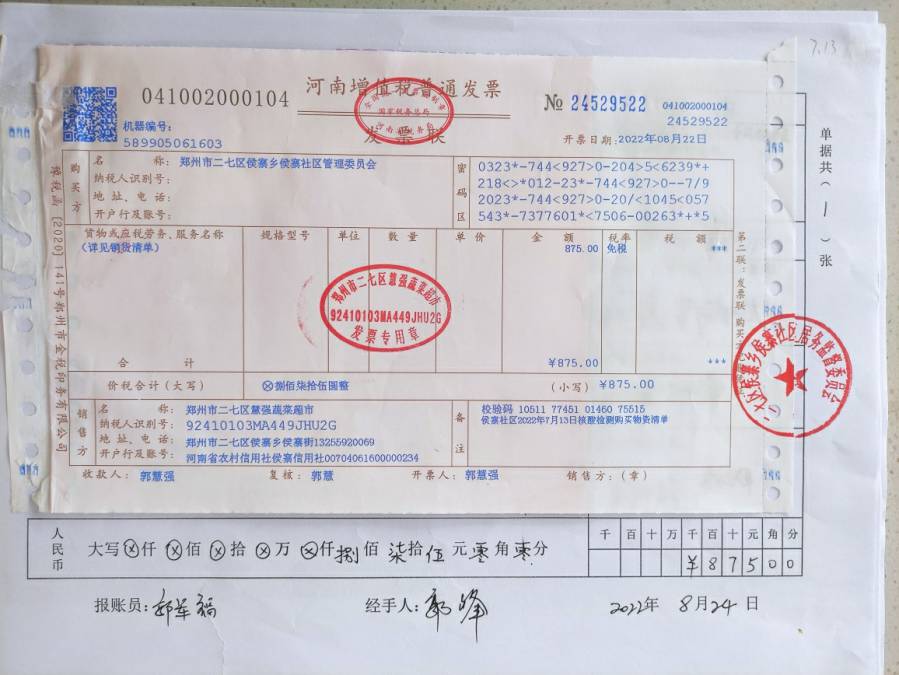 7.13
河南增值税普通发票
041002000104
№ 24529522
041002000104
24529522
机器编号:
589905061603
开票日期:2022年08月22日
购买方
名 称: 郑州市二七区侯寨乡侯寨社区管理委员会
纳税人识别号:
地址、电话:
开户行及账号:
密码区
0323*-744<927>0-204>5<6239*+
218<>*012-23*-744<927>0--7/9
2023*-744<927>0-20/<1045<057
543*-7377601*<7506-00263*+*5
货物或应税劳务、服务名称 规格型号 单位 数量 单价 金额 税率 税额
(详见销货清单) 875.00 免税 ***
郑州市二七区慧强蔬菜超市
92410103MA449JHU2G
发票专用章
合计 ¥875.00 ***
价税合计(大写) ⊗捌佰柒拾伍圆整 (小写) ¥875.00
销售方
名 称: 郑州市二七区慧强蔬菜超市
纳税人识别号: 92410103MA449JHU2G
地址、电话: 郑州市二七区侯寨乡侯寨街13255920069
开户行及账号: 河南省农村信用社侯寨信用社00704061600000234
备注
校验码 10511 77451 01460 75515
侯寨社区2022年7月13日核酸检测购买物资清单
收款人: 郭慧强 复核: 郭慧 开票人: 郭慧强 销售方:(章)
豫税函〔2020〕141号郑州市金税印务有限公司
第二联:发票联
单据共(1)张
人民币
大写⊗仟⊗佰⊗拾⊗万⊗仟捌佰柒拾伍元零角零分
千百十万千百十元角分
¥87500
报账员:
经手人:
2022年 8月24日